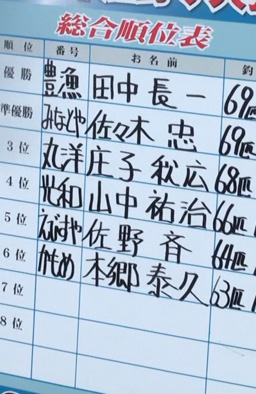 総合順位表
順位 番号 お名前 釣
優勝 豊漁 田中長一 69匹
準優勝 みなとや 佐々木忠 69匹
3位 丸洋 庄子秋広 68匹
4位 光和 山中祐治 66匹
5位 えびすや 佐野斉 64匹
6位 かもめ 本郷泰久 63匹
7位
8位